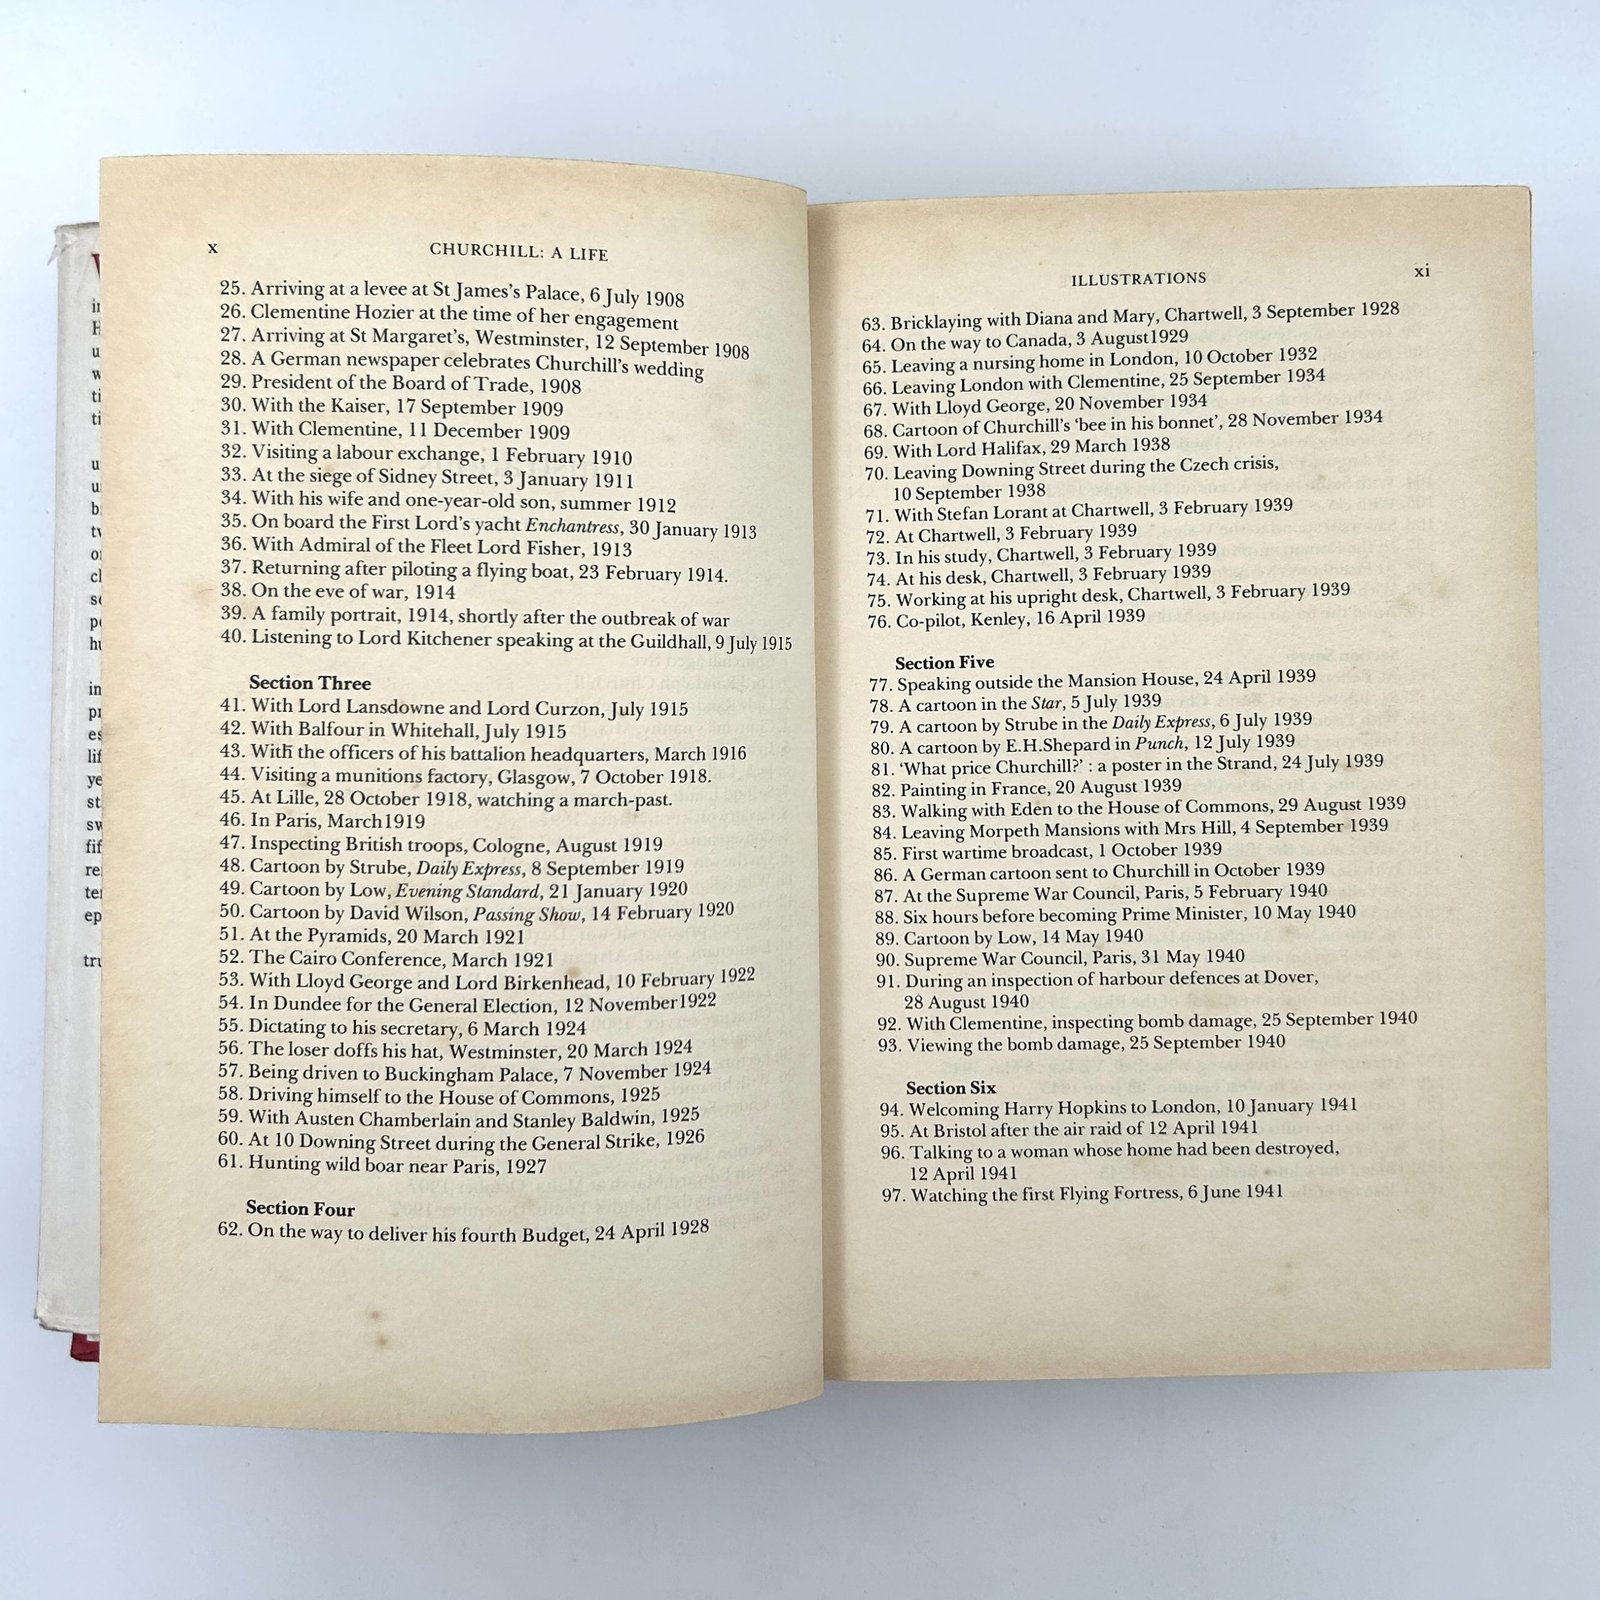 x
CHURCHILL: A LIFE
25. Arriving at a levee at St James's Palace, 6 July 1908
26. Clementine Hozier at the time of her engagement
27. Arriving at St Margaret's, Westminster, 12 September 1908
28. A German newspaper celebrates Churchill's wedding
29. President of the Board of Trade, 1908
30. With the Kaiser, 17 September 1909
31. With Clementine, 11 December 1909
32. Visiting a labour exchange, 1 February 1910
33. At the siege of Sidney Street, 3 January 1911
34. With his wife and one-year-old son, summer 1912
35. On board the First Lord's yacht Enchantress, 30 January 1913
36. With Admiral of the Fleet Lord Fisher, 1913
37. Returning after piloting a flying boat, 23 February 1914.
38. On the eve of war, 1914
39. A family portrait, 1914, shortly after the outbreak of war
40. Listening to Lord Kitchener speaking at the Guildhall, 9 July 1915
Section Three
41. With Lord Lansdowne and Lord Curzon, July 1915
42. With Balfour in Whitehall, July 1915
43. With the officers of his battalion headquarters, March 1916
44. Visiting a munitions factory, Glasgow, 7 October 1918.
45. At Lille, 28 October 1918, watching a march-past.
46. In Paris, March1919
47. Inspecting British troops, Cologne, August 1919
48. Cartoon by Strube, Daily Express, 8 September 1919
49. Cartoon by Low, Evening Standard, 21 January 1920
50. Cartoon by David Wilson, Passing Show, 14 February 1920
51. At the Pyramids, 20 March 1921
52. The Cairo Conference, March 1921
53. With Lloyd George and Lord Birkenhead, 10 February 1922
54. In Dundee for the General Election, 12 November1922
55. Dictating to his secretary, 6 March 1924
56. The loser doffs his hat, Westminster, 20 March 1924
57. Being driven to Buckingham Palace, 7 November 1924
58. Driving himself to the House of Commons, 1925
59. With Austen Chamberlain and Stanley Baldwin, 1925
60. At 10 Downing Street during the General Strike, 1926
61. Hunting wild boar near Paris, 1927
Section Four
62. On the way to deliver his fourth Budget, 24 April 1928
ILLUSTRATIONS
xi
63. Bricklaying with Diana and Mary, Chartwell, 3 September 1928
64. On the way to Canada, 3 August1929
65. Leaving a nursing home in London, 10 October 1932
66. Leaving London with Clementine, 25 September 1934
67. With Lloyd George, 20 November 1934
68. Cartoon of Churchill's 'bee in his bonnet', 28 November 1934
69. With Lord Halifax, 29 March 1938
70. Leaving Downing Street during the Czech crisis,
10 September 1938
71. With Stefan Lorant at Chartwell, 3 February 1939
72. At Chartwell, 3 February 1939
73. In his study, Chartwell, 3 February 1939
74. At his desk, Chartwell, 3 February 1939
75. Working at his upright desk, Chartwell, 3 February 1939
76. Co-pilot, Kenley, 16 April 1939
Section Five
77. Speaking outside the Mansion House, 24 April 1939
78. A cartoon in the Star, 5 July 1939
79. A cartoon by Strube in the Daily Express, 6 July 1939
80. A cartoon by E.H.Shepard in Punch, 12 July 1939
81. 'What price Churchill?' : a poster in the Strand, 24 July 1939
82. Painting in France, 20 August 1939
83. Walking with Eden to the House of Commons, 29 August 1939
84. Leaving Morpeth Mansions with Mrs Hill, 4 September 1939
85. First wartime broadcast, 1 October 1939
86. A German cartoon sent to Churchill in October 1939
87. At the Supreme War Council, Paris, 5 February 1940
88. Six hours before becoming Prime Minister, 10 May 1940
89. Cartoon by Low, 14 May 1940
90. Supreme War Council, Paris, 31 May 1940
91. During an inspection of harbour defences at Dover,
28 August 1940
92. With Clementine, inspecting bomb damage, 25 September 1940
93. Viewing the bomb damage, 25 September 1940
Section Six
94. Welcoming Harry Hopkins to London, 10 January 1941
95. At Bristol after the air raid of 12 April 1941
96. Talking to a woman whose home had been destroyed,
12 April 1941
97. Watching the first Flying Fortress, 6 June 1941